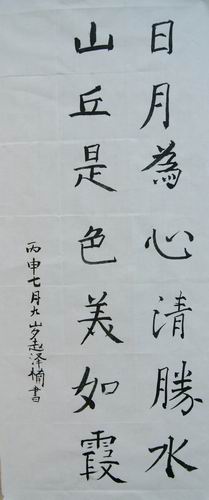 日月為心清勝水
山丘是色美如霞
丙申七月九岁赵泽楠書